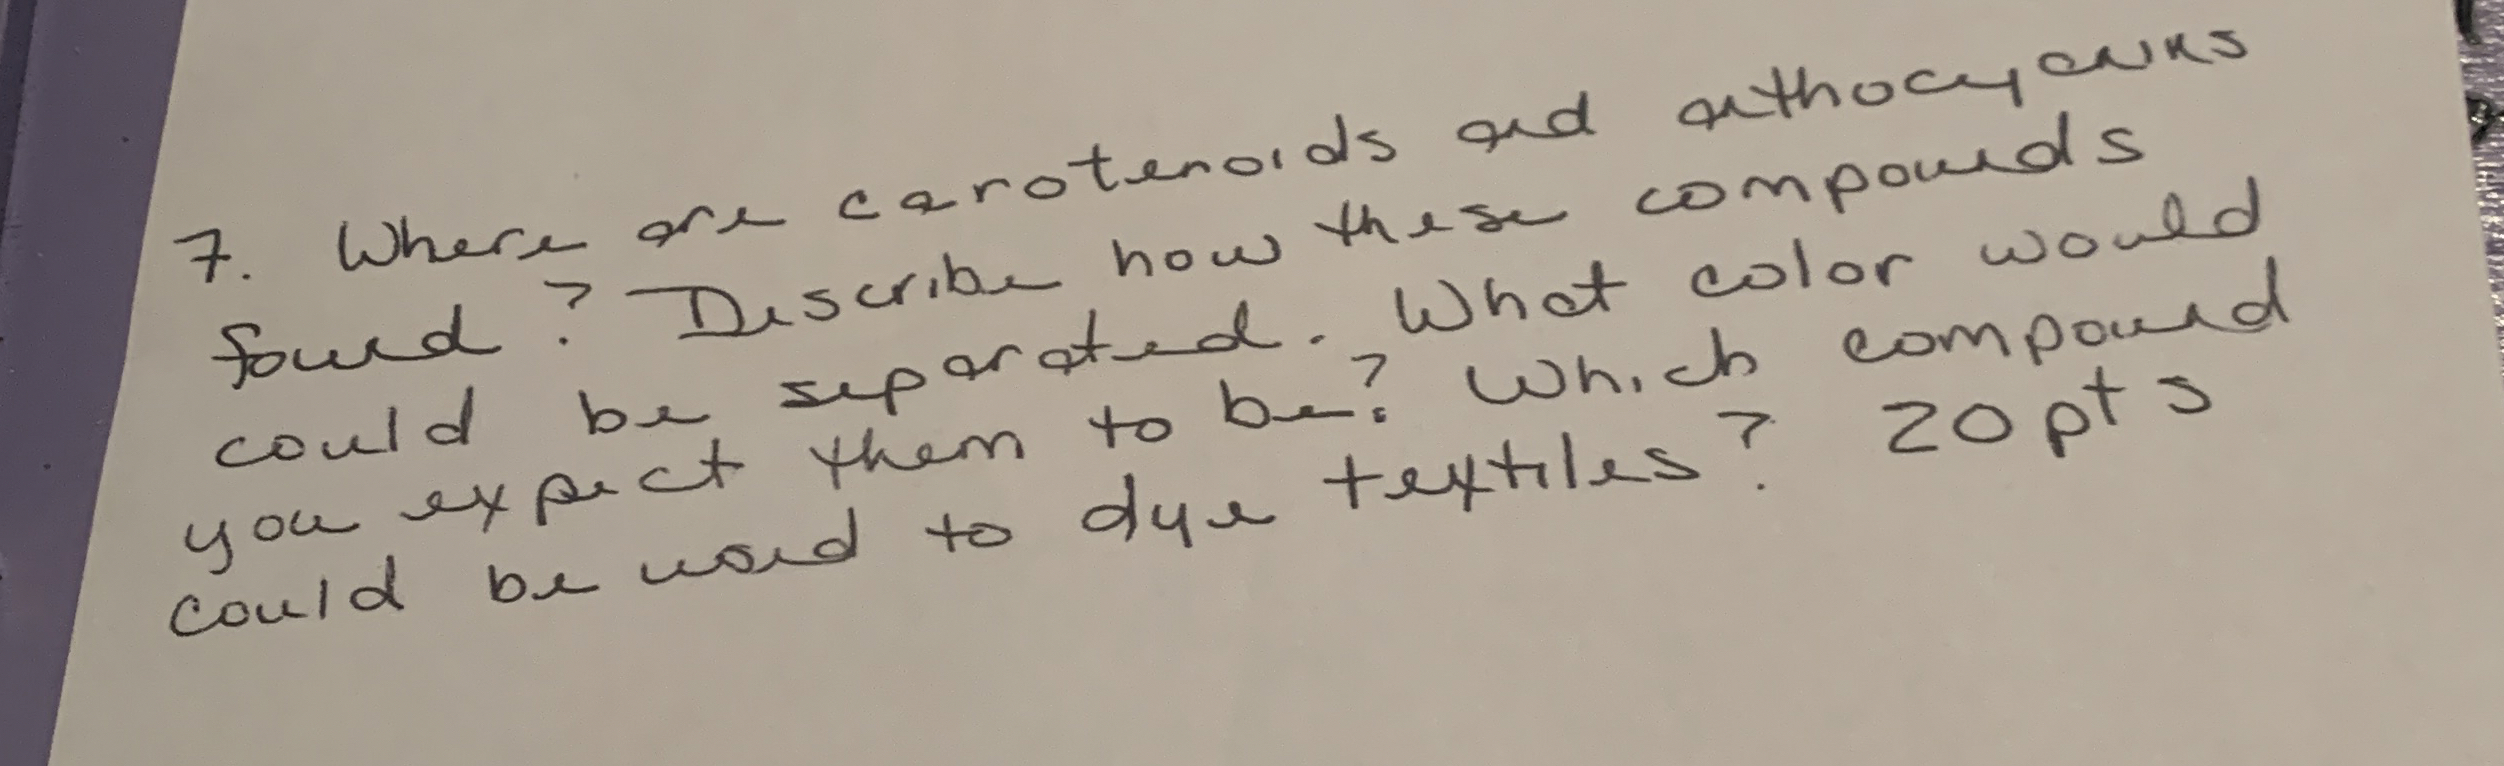 7. Where are carotenoids and anthocyanins
found? Describe how these compounds
could be separated. What color would
you expect them to be? Which compound
could be used to dye textiles? 20 pts